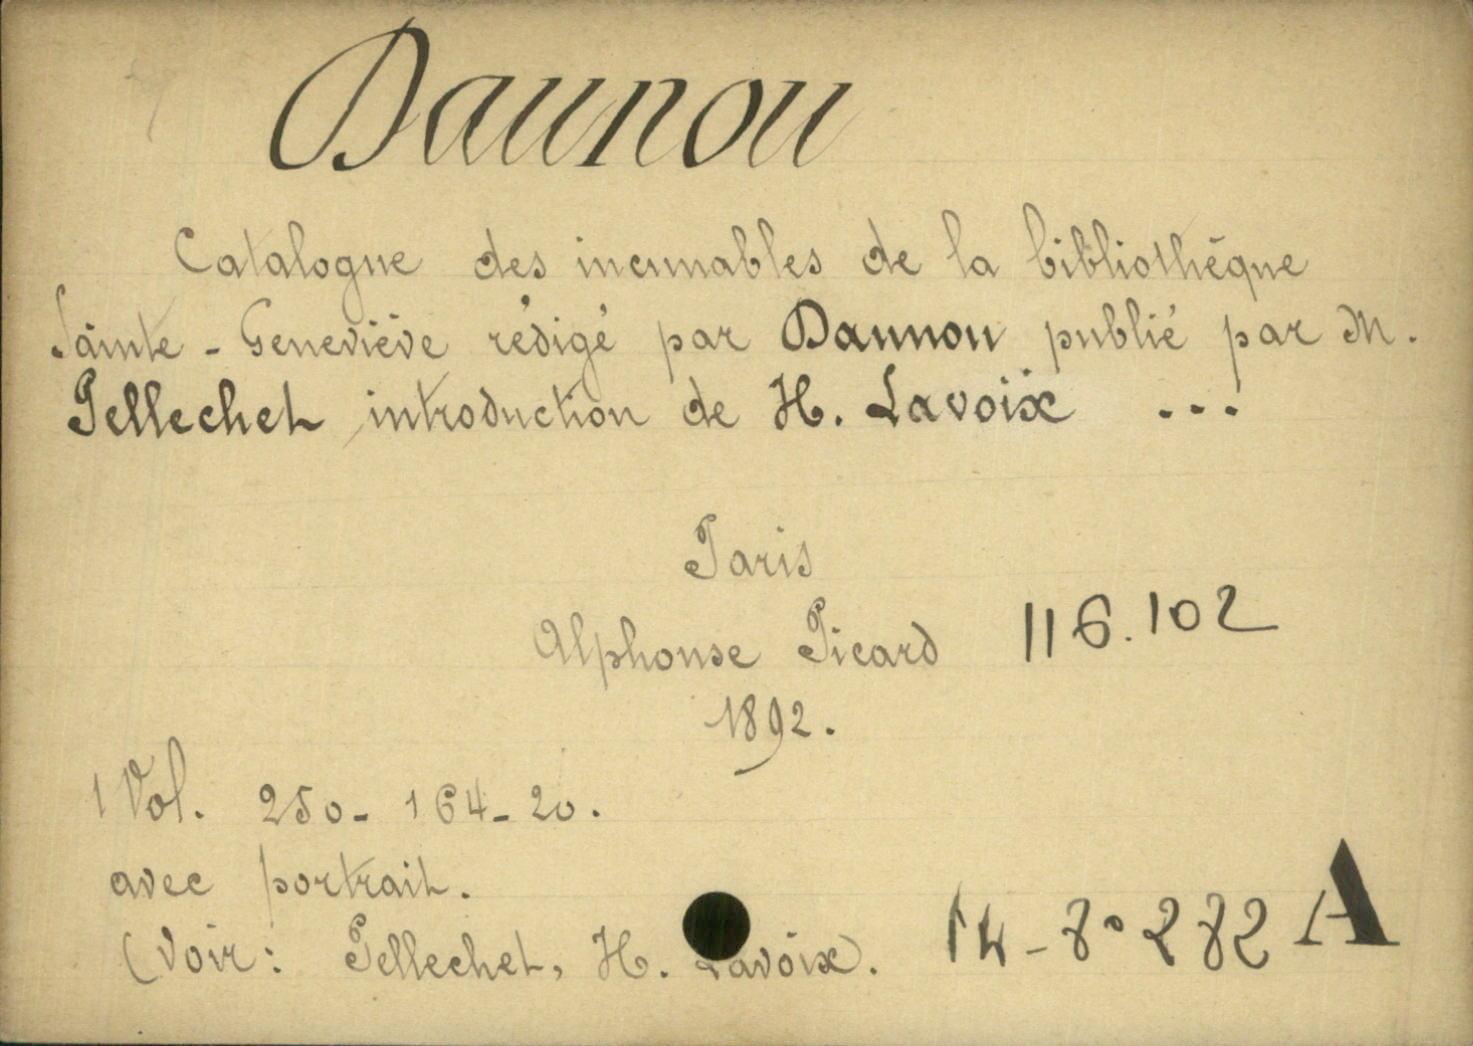 Daunou
Catalogue des incunables de la bibliothèque
Sainte-Geneviève rédigé par Daunou publié par M.
Pellechet introduction de H. Lavoix ...
Paris
Alphonse Picard 116.102
1892.
1 Vol. 250-164-20.
avec portrait.
(Voir: Pellechet, H. Lavoix). 14-8° 282 A